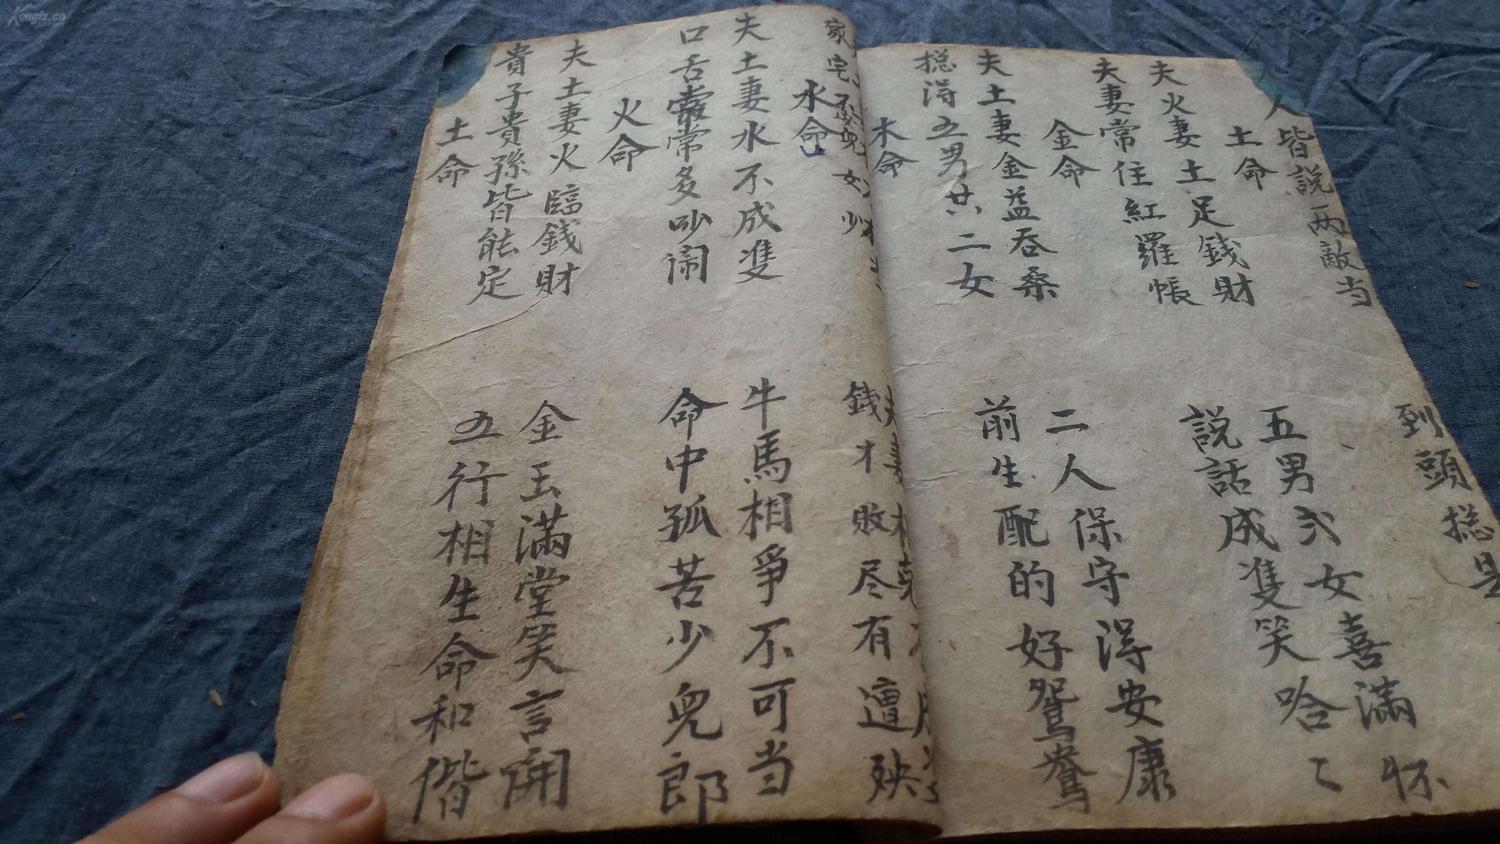 人皆説兩敵当 到頭捴是
土命
夫火妻土足錢財 五男弍女喜滿怀
夫妻常住紅羅帳 説話成隻笑哈〻
金命
夫土妻金益吞桑 二人保守得安康
捴得五男廿二女 前生配的好鴛鴦
木命
夫妻木克
家宅不安兒女少 錢才敗尽有遭殃
水命
夫土妻水不成隻 牛馬相爭不可当
口舌常常多吵闹 命中孤苦少兒郎
火命
夫土妻火臨錢財 金玉滿堂笑言開
貴子貴孫皆能定 五行相生命和偕
土命
Kongfz.cn